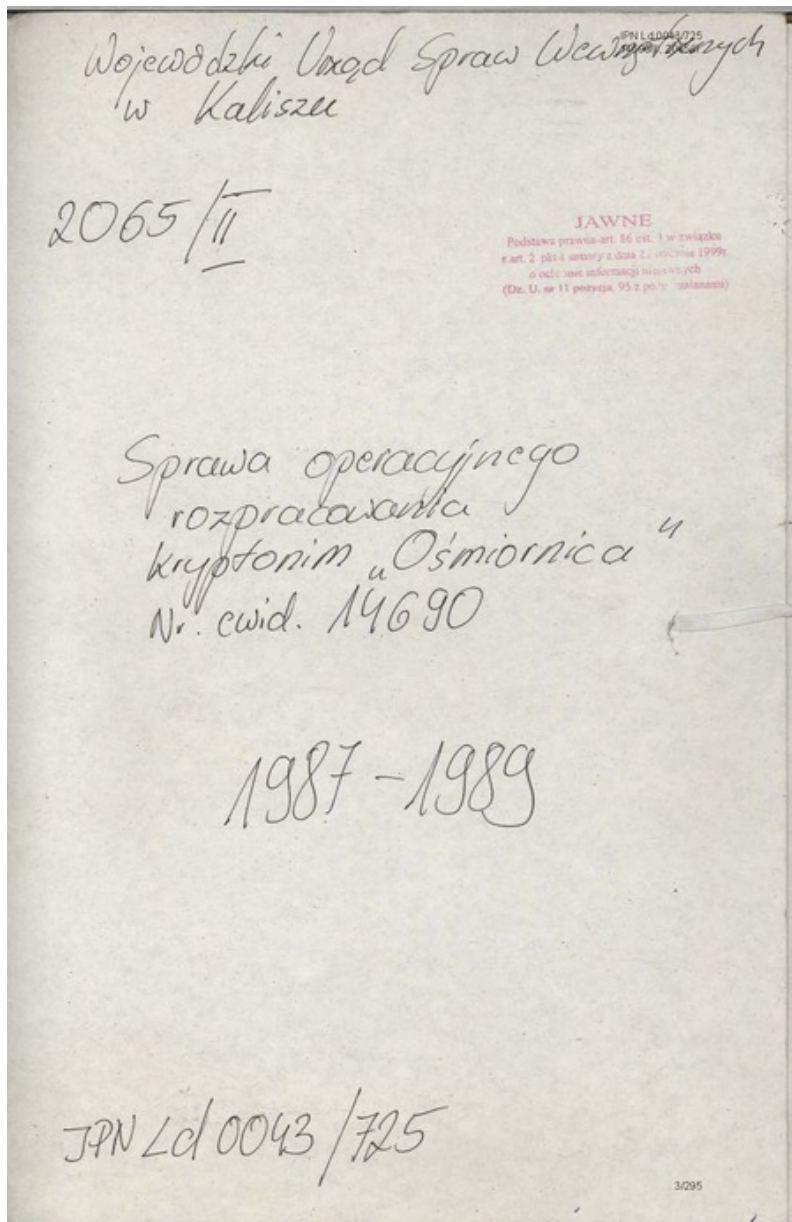 IPN Ld 0043/725
Wojewódzki Urząd Spraw Wewnętrznych
w Kaliszu
2065/II
JAWNE
Podstawa prawna-art. 86 ust. w związku
z art. 2 pkt 1 ustawy z dnia stycznia 1999r.
o ochronie informacji niejawnych
(Dz. U. nr 11 pozycja. 95 z zmianami)
Sprawa operacyjnego
rozpracowania
kryptonim „Ośmiornica"
Nr. ewid. 14690
1987 - 1989
IPN Ld 0043/725
3/295